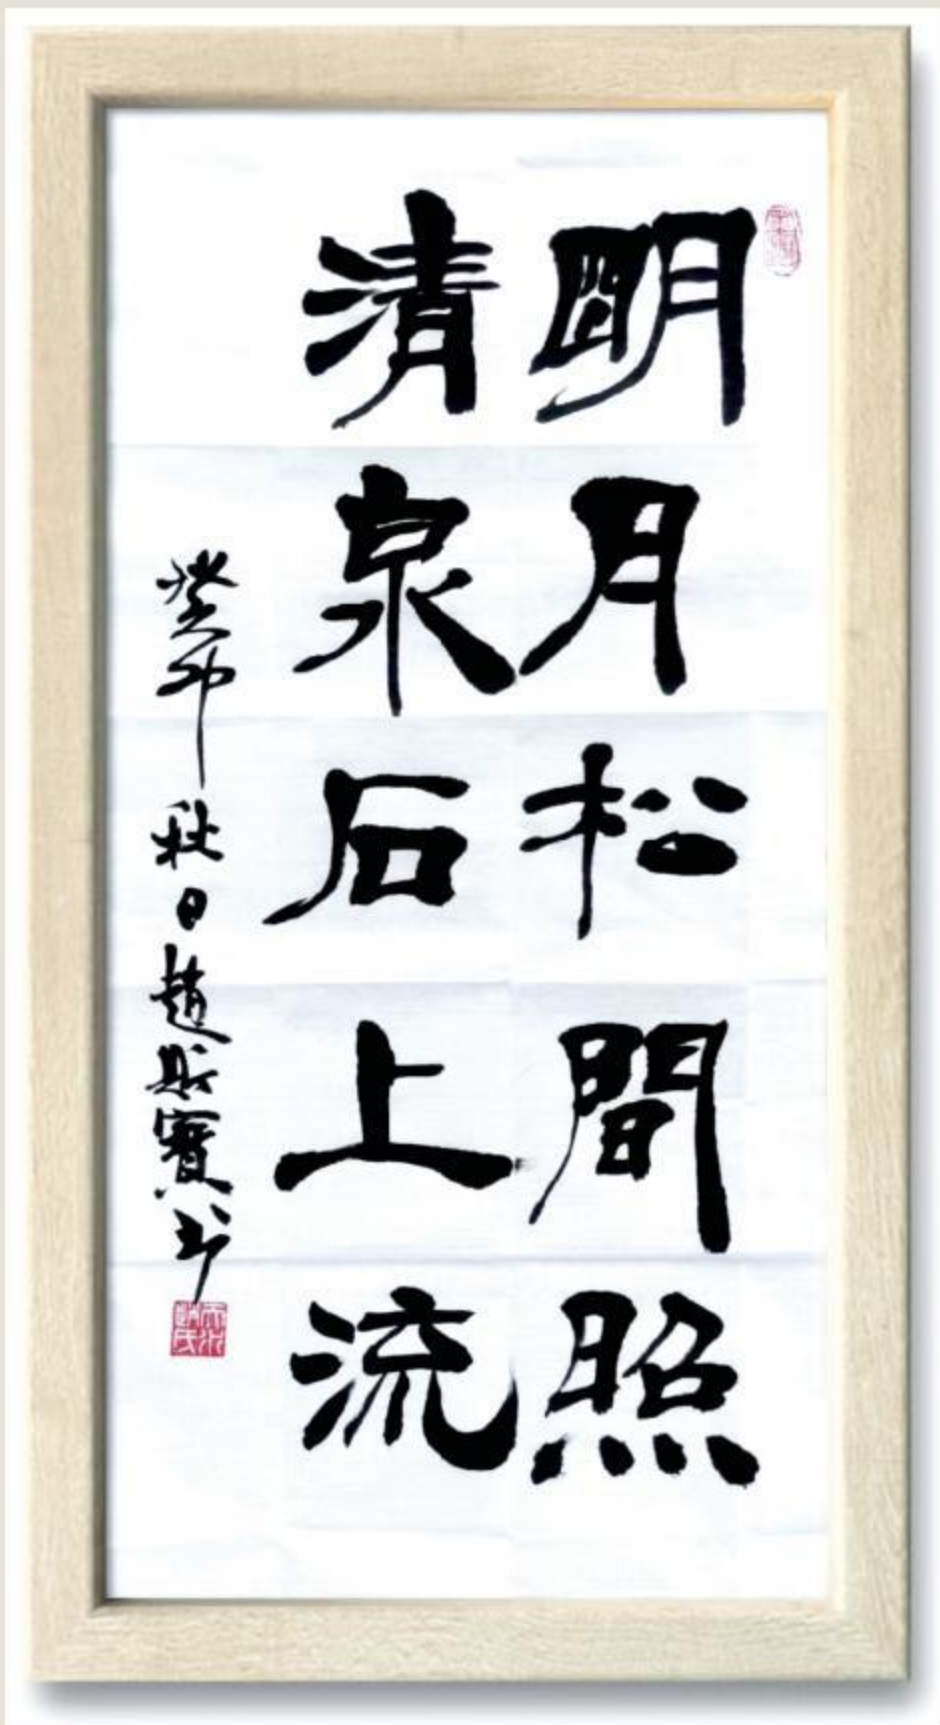 明月松間照
清泉石上流
癸卯秋日趙財寶书